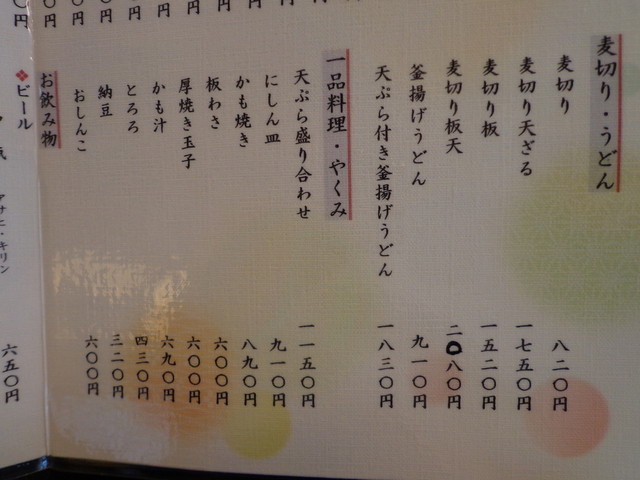 麦切り・うどん
麦切り 八二〇円
麦切り天ざる 一七五〇円
麦切り板 一五二〇円
麦切り板天 二〇八〇円
釜揚げうどん 九一〇円
天ぷら付き釜揚げうどん 一八三〇円
一品料理・やくみ
天ぷら盛り合わせ 一一五〇円
にしん皿 九一〇円
かも焼き 八九〇円
板わさ 六〇〇円
厚焼き玉子 六〇〇円
かも汁 六九〇円
とろろ 四三〇円
納豆 三二〇円
おしんこ 六〇〇円
お飲み物
❖ビール
アサヒ・キリン 六五〇円